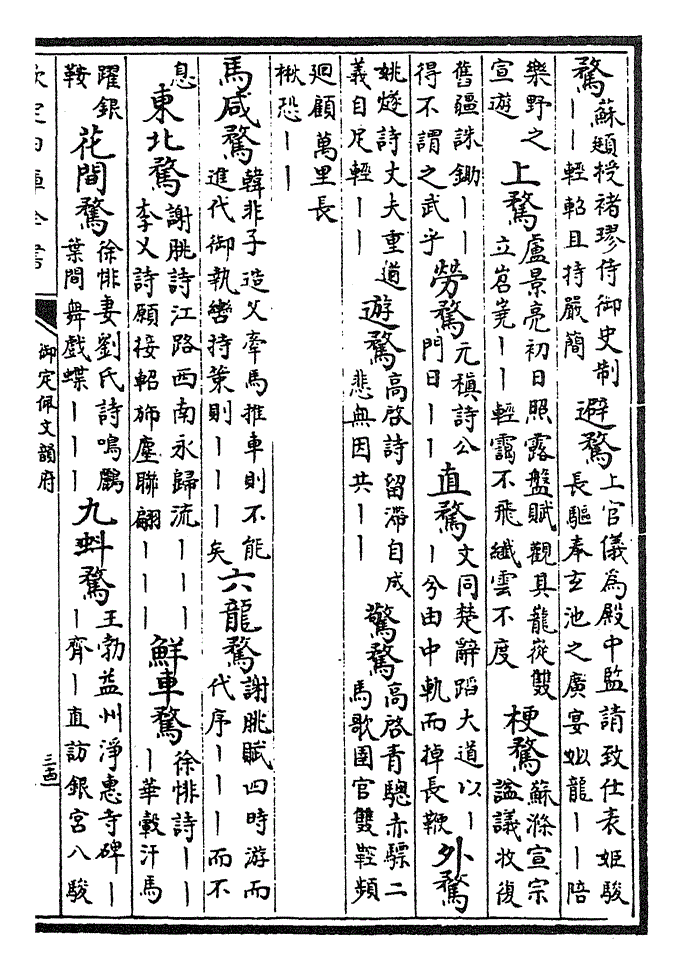 騖蘇頲授褚璆侍御史制——輕軺且持嚴簡 避騖上官儀為殿中監請致仕表姬駿長驅奉玄池之廣宴姒龍——陪
樂野之宣遊 上騖盧景亮初日照露盤賦觀其龍從雙立岧嶤——輕靄不飛纖雲不度 梗騖蘇滌宣宗諡議收復
舊疆誅鋤——得不謂之武乎 勞騖元稹詩公門日—— 直騖文同楚辭蹈大道以——兮由中軌而掉長鞭 外騖
姚燧詩丈夫重道義自足輕—— 遊騖高啓詩留滯自成悲無因共—— 驚騖高啓青驄赤驃二馬歌圉官雙鞚頻
迴顧萬里長楸恐——
馬咸騖韓非子造父牽馬推車則不能進代御執轡持策則———矣 六龍騖謝朓賦四時游而代序———而不
息 東北騖謝朓詩江路西南永歸流———李乂詩願接軺旆塵聯翩——— 鮮車騖徐悱詩———華轂汗馬
躍銀鞍 花間騖徐悱妻劉氏詩鳴鸝葉間舞戲蝶——— 九蚪騖王勃益州淨惠寺碑——齊—直訪銀宮八駿
欽定四庫全書
御定佩文韻府